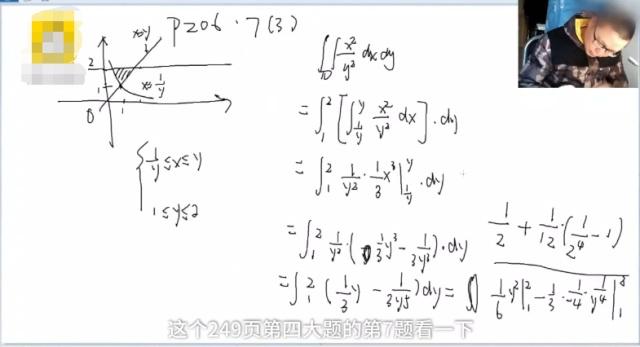 P206 · 7(3)
x=y
2
x=1/y
1
0
1
1/y ≤ x ≤ y
1 ≤ y ≤ 2
∬_D x²/y² dxdy
= ∫₁² [∫_{1/y}^{y} x²/y² dx] · dy
= ∫₁² 1/y² · 1/3 x³ |_{1/y}^{y} · dy
= ∫₁² 1/y² · (1/3 y³ − 1/(3y³)) · dy
= ∫₁² (1/3 y − 1/(3y⁵)) dy =
1/2 + 1/12 · (1/2⁴ − 1)
1/6 y² |₁² − 1/3 · 1/−4 · 1/y⁴ |₁²
这个249页第四大题的第7题看一下